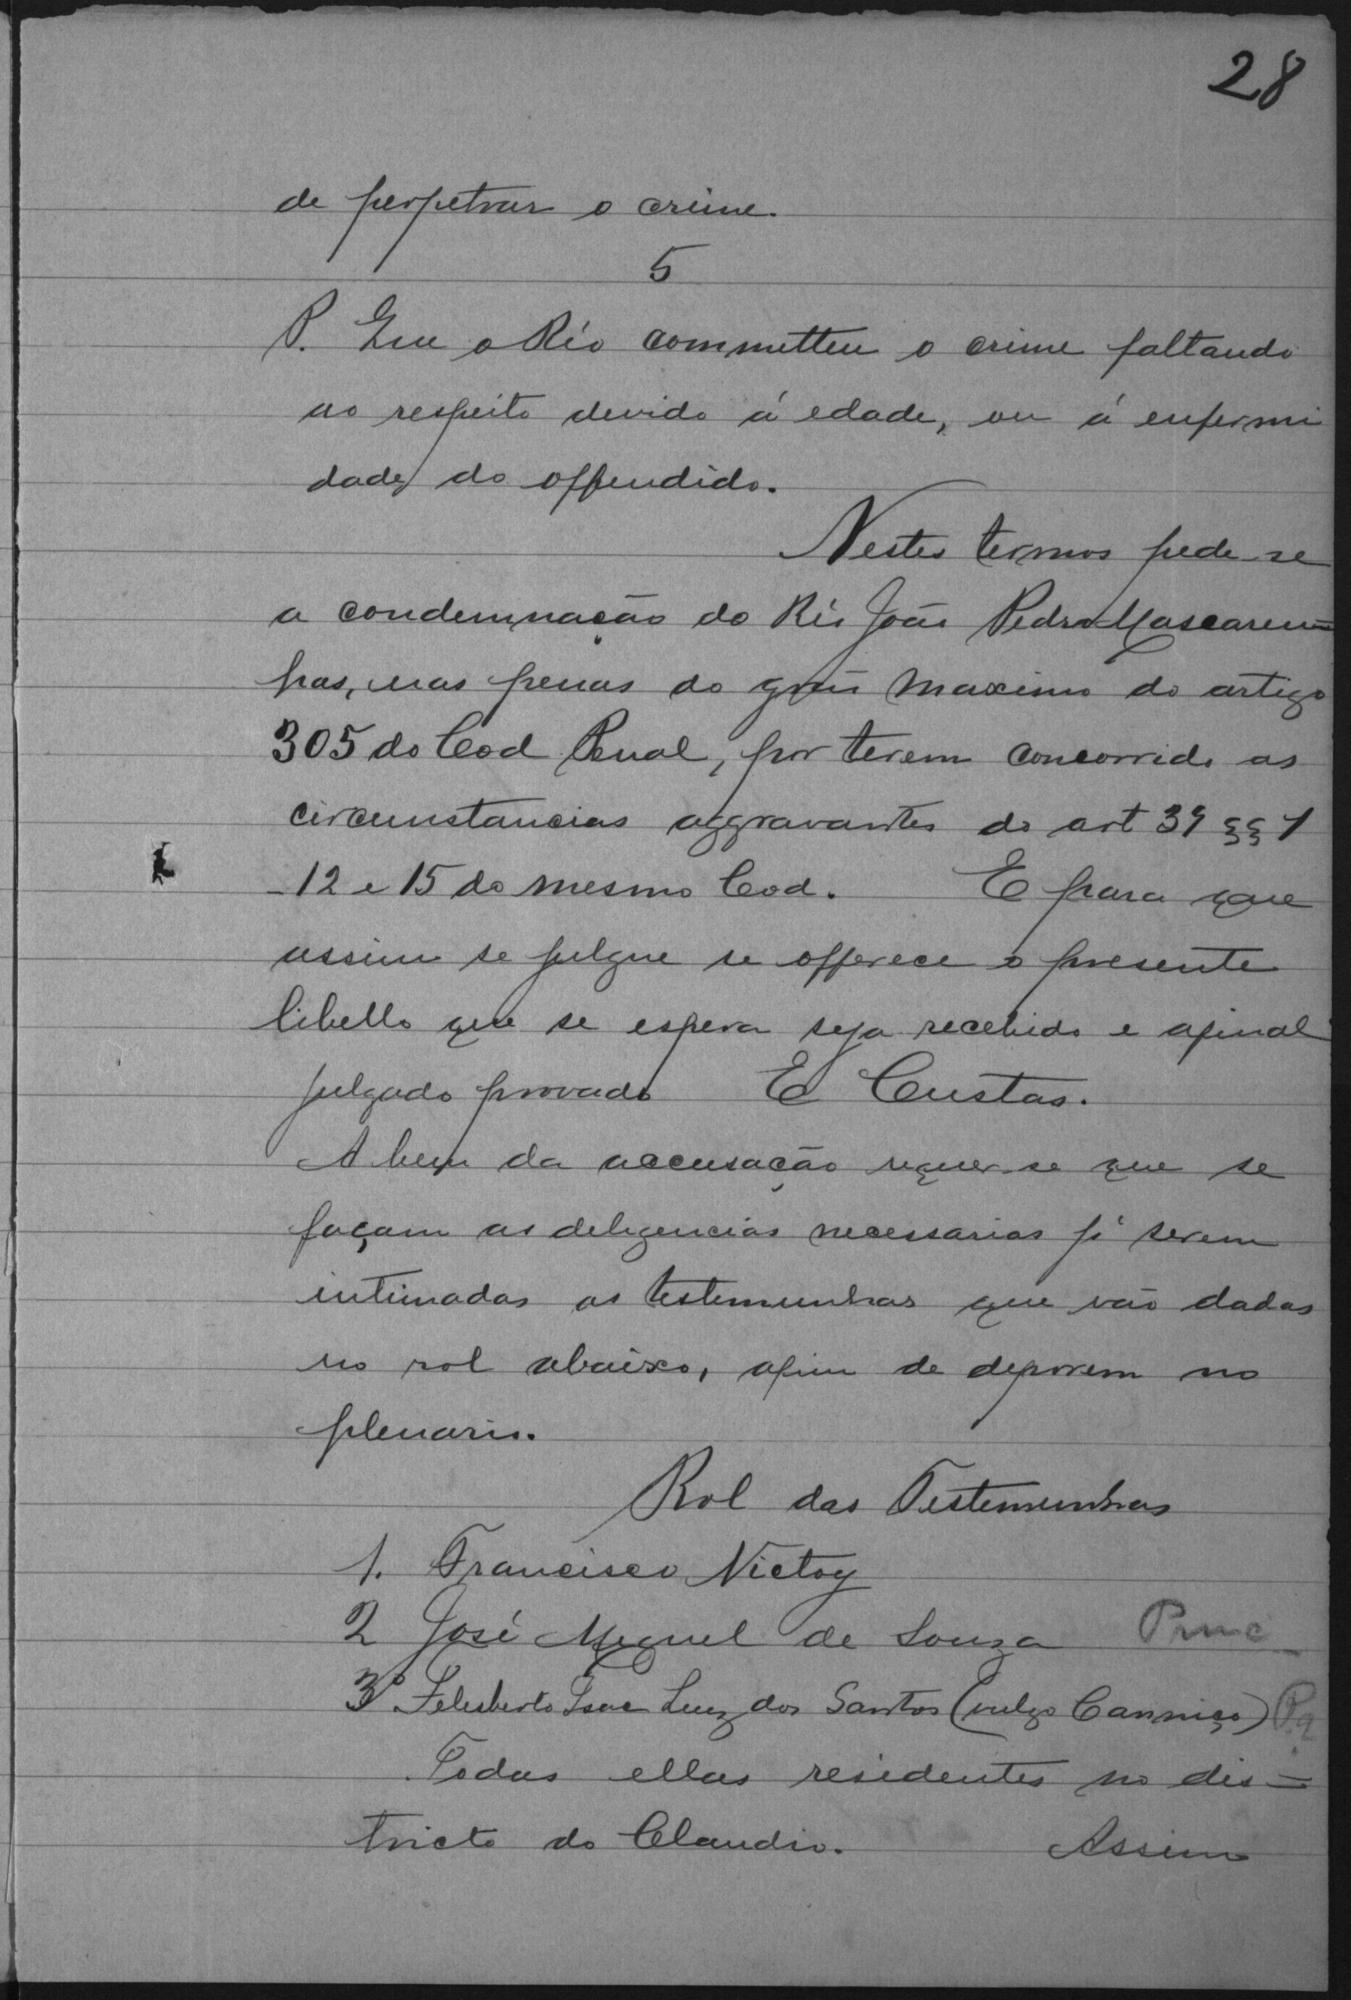 28
de perpetrar o crime.
5
P. Que o Réo commetteu o crime faltando
ao respeito devido á edade, ou á enfermi
dade do offendido.
Nestes termos pede-se
a condemnação do Réo João Pedro Mascaren=
has, nas penas do gráu maximo do artigo
305 do Cod Penal, por terem concorrido as
circumstancias aggravantes do art 39 §§ 1
- 12 e 15 do mesmo Cod. E para que
assim se julgue se offerece o presente
libello que se espera seja recebido e afinal
julgado provado E Custas.
A bem da accusação requer-se que se
façam as deligencias necessarias pª serem
intimadas as testemunhas que vão dadas
no rol abaixo, afim de deporem no
plenario.
Rol das Testemunhas
1. Francisco Victoy
2 José Miguel de Souza
3º Felesberto Isac Luiz dos Santos (vulgo Canniço)
Todas ellas residentes no dis=
tricto do Claudio. Assim